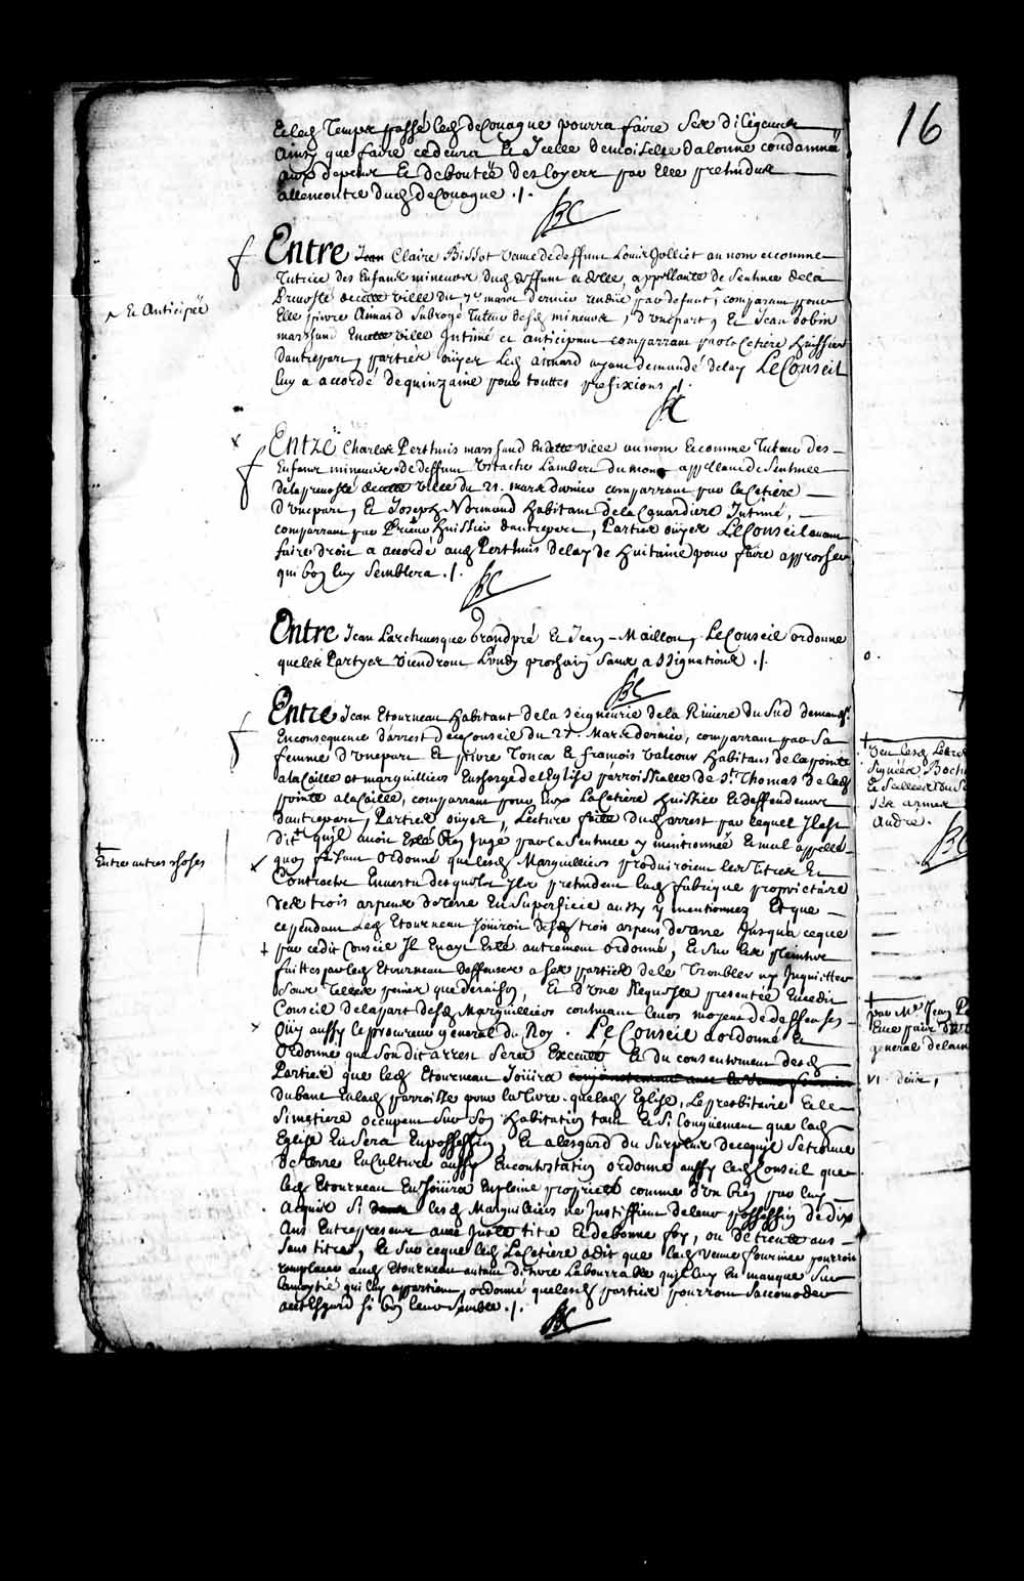 16
Et led Temps passé led deCouagne pourra faire ses diligences
Ainsy que faire ce deura Et Icelle demoiselle dalonne condamnée
aux depens Et deboutée des loyers par Elle pretendus
allencontre dud deCouagne ./.
Entre Claire Bissot veuue de deffunt Louis Jolliet au nom et comme
Tutrice des Enfans mineurs dud deffunt et delle, appellante de Sentence de la
Preuosté de cette ville du 7e mars dernier rendüe par defaut, comparant pour
^ Et Anticipée
Elle pierre Aimard Subrogé Tuteur desd mineurs, d'vnepart, Et Jean Gobin
marchand En cette ville Intimé et anticipant comparant par laCetiere Huissier
dautrepart, parties ouyes led aimard ayant demandé delay LeConseil
luy a accordé de quinzaine pour touttes prefixions ./.
Entre Charles Perthuis marchand En cette ville au nom Et comme Tuteur des
Enfans mineurs de deffunt Vstache Lambert dumont appellant de Sentence
de la preuosté de cette ville du 21. mars dernier comparant par laCetiere
d'vnepart, Et Joseph Normand habitant de la Canardiere Intimé,
comparant par Prieur huissier dautrepart, Parties ouyes LeConseil auant
faire droit a accordé aud Perthuis delay de huitaine pour faire approcher
qui bon luy Semblera ./.
Entre Jean Larcheuesque Grandpré Et Jean Maillou, LeConseil ordonne
que les Partyes viendront Lundy prochain sans assignations ./.
Entre Jean Etourneau habitant de la Seigneurie de la Riuiere du Sud demandr
En consequence d'arrest de ce Conseil du 27. Mars dernier, comparant par Sa
femme d'vnepart Et pierre Joncas Et francois valcour habitans de la pointe
a la Caille et marguilliers En charge de l'Eglise parroissialle de St. Thomas de lad
pointe a la Caille, comparant pour Eux LaCetiere huissier Et deffendeurs
dautrepart, Parties ouyes, Lecture faite dud arrest par lequel Il est
dit quil auoit Esté bien Jugé par la Sentence y mentionnée Et mal appellé
† Entre autres choses
quoy faisant ordonné que lesd Marguilliers produiroient les Titres Et
Contracts En vertu desquels Ils pretendent lad fabrique proprietaire
des trois arpens de terre En Superficie aussy y mentionnez Et que
cependant led Etourneau Jouiroit desd trois arpens de terre Jusqua ceque
par cedit Conseil Il En ayt Esté autrement ordonné, Et sur les plaintes
faittes par led Etourneau deffenses a ses parties de le Troubler ny Inquietter
sous telles peines que de raison, Et d'vne Requeste presentée En cedit
Conseil de la part desd Marguilliers contenant leurs moyens de deffenses
Oüy aussy le procureur general du Roy. LeConseil a ordonné Et
Ordonne que Son dit arrest Sera Executé Et du consentement desd
Parties que led Etourneau Jouira
du banc En lad parroisse pour la terre que lad Eglise, Le presbitaire Et le
Simetiere occupent sur Son habitation tant Et Si longuement que lad
Eglise En Sera En possession, Et a lesgard du Surplus de ce quil se trouue
de terre En Culture aussy En contestation ordonne aussy led Conseil que
led Etourneau En Jouira En pleine proprieté comme d'vn bien par luy
acquis Si lesd Marguilliers ne Justiffient de leur possession de dix
Ans Entre presens auec Juste titre Et de bonne foy, ou de trente ans
Sans titre, Et Sur ceque led LaCetiere a dit que lad veuue fournier pourroit
remplacer aud Etourneau autant de terre Labourable quil luy En manque Sur
la moytié qui luy appartient, ordonné que lesd parties pourront Saccomoder
a cet Esgard si bon leur Semble ./.
o.
†
Veu lesd Lettres
Signées Boch
Et Scellées du S
Ses armes
André.
†
par Me Jean
general de
vi. deüe,